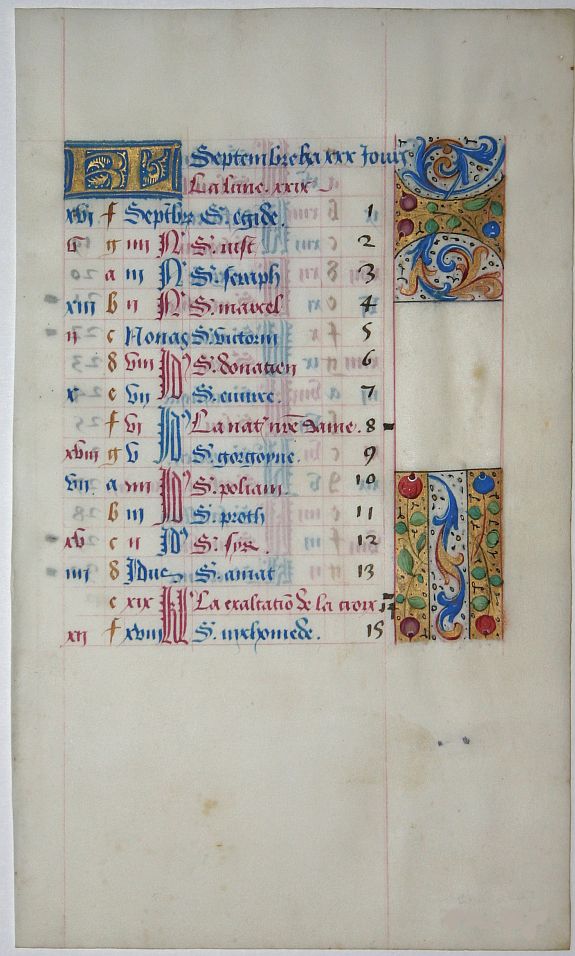 KL Septembre ha xxx Jours
La lune xxix
xvi f Septēbre S. egide. 1
v g iiii N' S. iust 2
a iii N' S. seraph 3
xiii b ii N' S. marcel 4
ii c Nonas S. victorin 5
d viii D' S. donatien 6
x e vii S. euurtre. 7
f vi D' La nat' nr̄e dame. 8
xviii g v S. gorgoyne. 9
vii a iiii D' S. poliain 10
b iii S. proth 11
xv c ii D' S. syr. 12
iiii d Idus S. amat 13
e xix KL La exaltatiō de la croix. 14
xii f xviii S. nichomede. 15